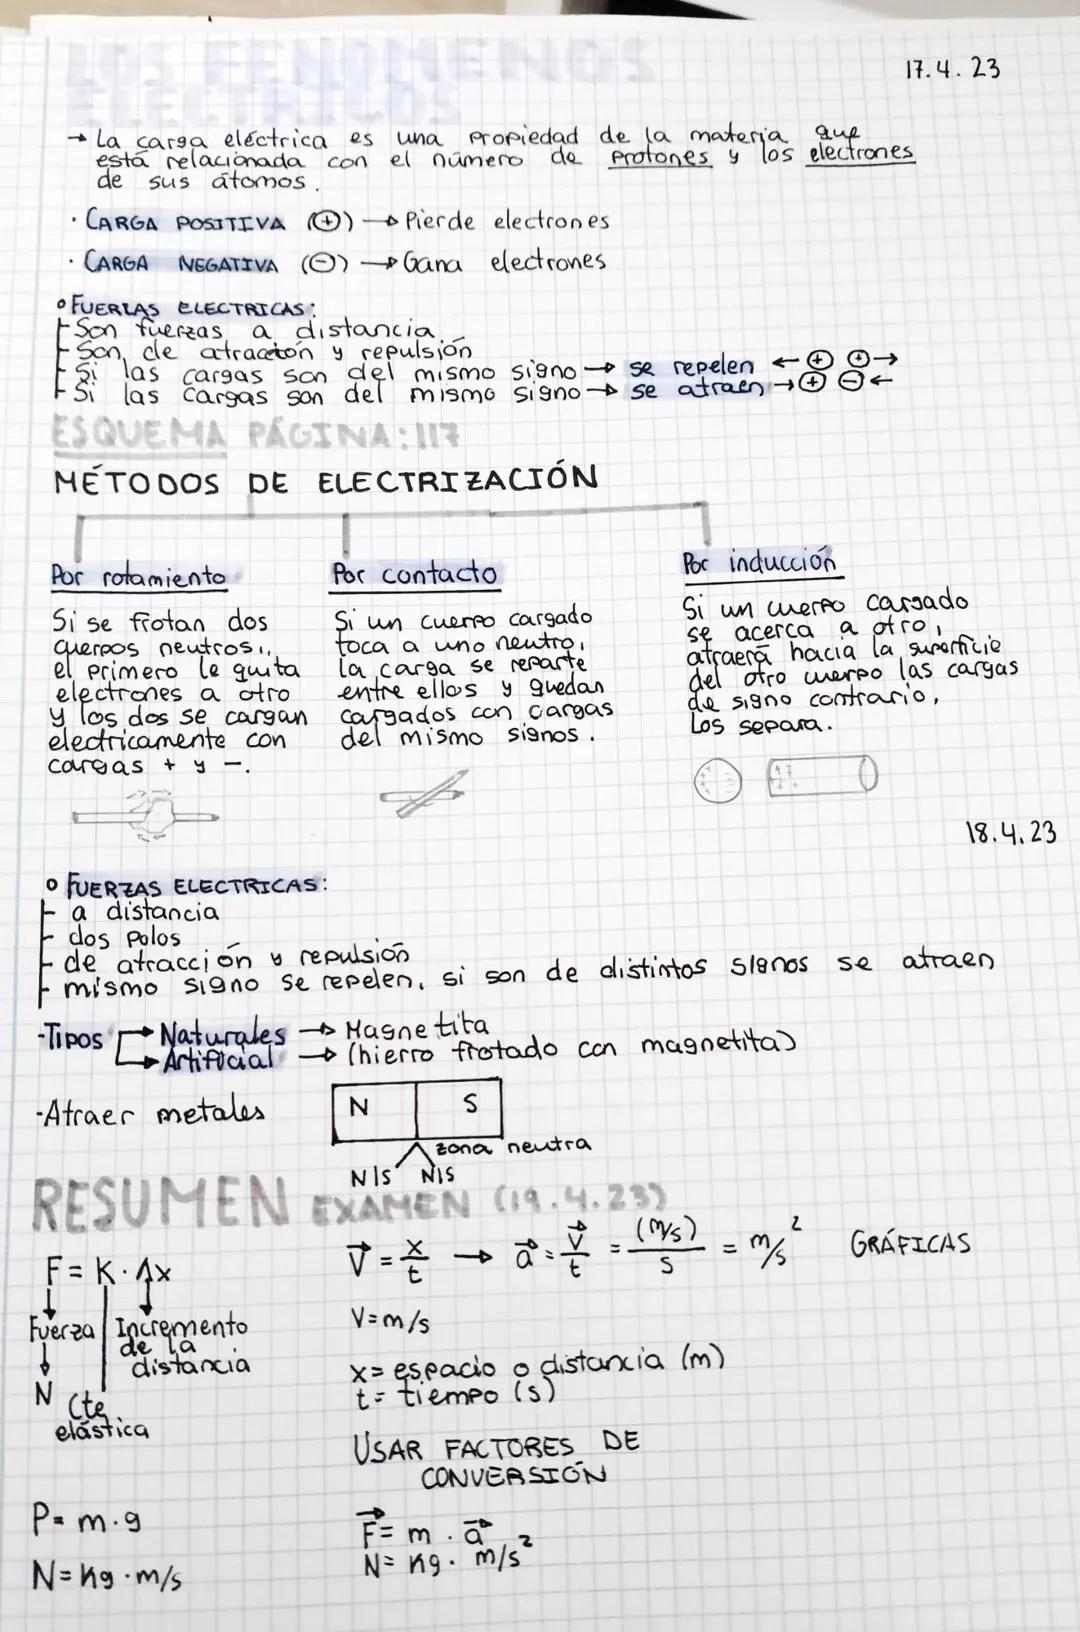 LOS FENOMENOS
ELECTRICOS
17.4.23
→ La carga eléctrica es una propiedad de la materia que
está relacionada con el número de protones y los electrones
de sus átomos.
· CARGA POSITIVA (+) → Pierde electrones
· CARGA NEGATIVA (-) → Gana electrones
° FUERZAS ELECTRICAS:
- Son fuerzas a distancia
- Son de atracción y repulsión
- Si las cargas son del mismo signo → se repelen ← + + →
- Si las cargas son del mismo signo → se atraen → + - ←
ESQUEMA PÁGINA: 117
MÉTODOS DE ELECTRIZACIÓN
Por rotamiento
Si se frotan dos
cuerpos neutros,
el primero le quita
electrones a otro
y los dos se cargan
electricamente con
cargas + y -.
Por contacto
Si un cuerpo cargado
toca a uno neutro,
la carga se reparte
entre ellos y quedan
cargados con cargas
del mismo signos.
Por inducción
Si un cuerpo cargado
se acerca a otro,
atraerá hacia la superficie
del otro cuerpo las cargas
de signo contrario,
Los separa.
18.4.23
° FUERZAS ELECTRICAS:
- a distancia
- dos polos
- de atracción y repulsión
- mismo signo se repelen, si son de distintos signos se atraen
- Tipos → Naturales → Magnetita
→ Artificial → (hierro frotado con magnetita)
- Atraer metales
N S
zona neutra
N|S N|S
RESUMEN EXAMEN (19.4.23)
F = K · Δx
Fuerza
N
Cte
elástica
Incremento
de la
distancia
P = m · g
N = Kg · m/s
V = x/t → a = V/t = (m/s)/s = m/s²
GRÁFICAS
V = m/s
x = espacio o distancia (m)
t = tiempo (s)
USAR FACTORES DE
CONVERSIÓN
F = m · a
N = Kg · m/s²